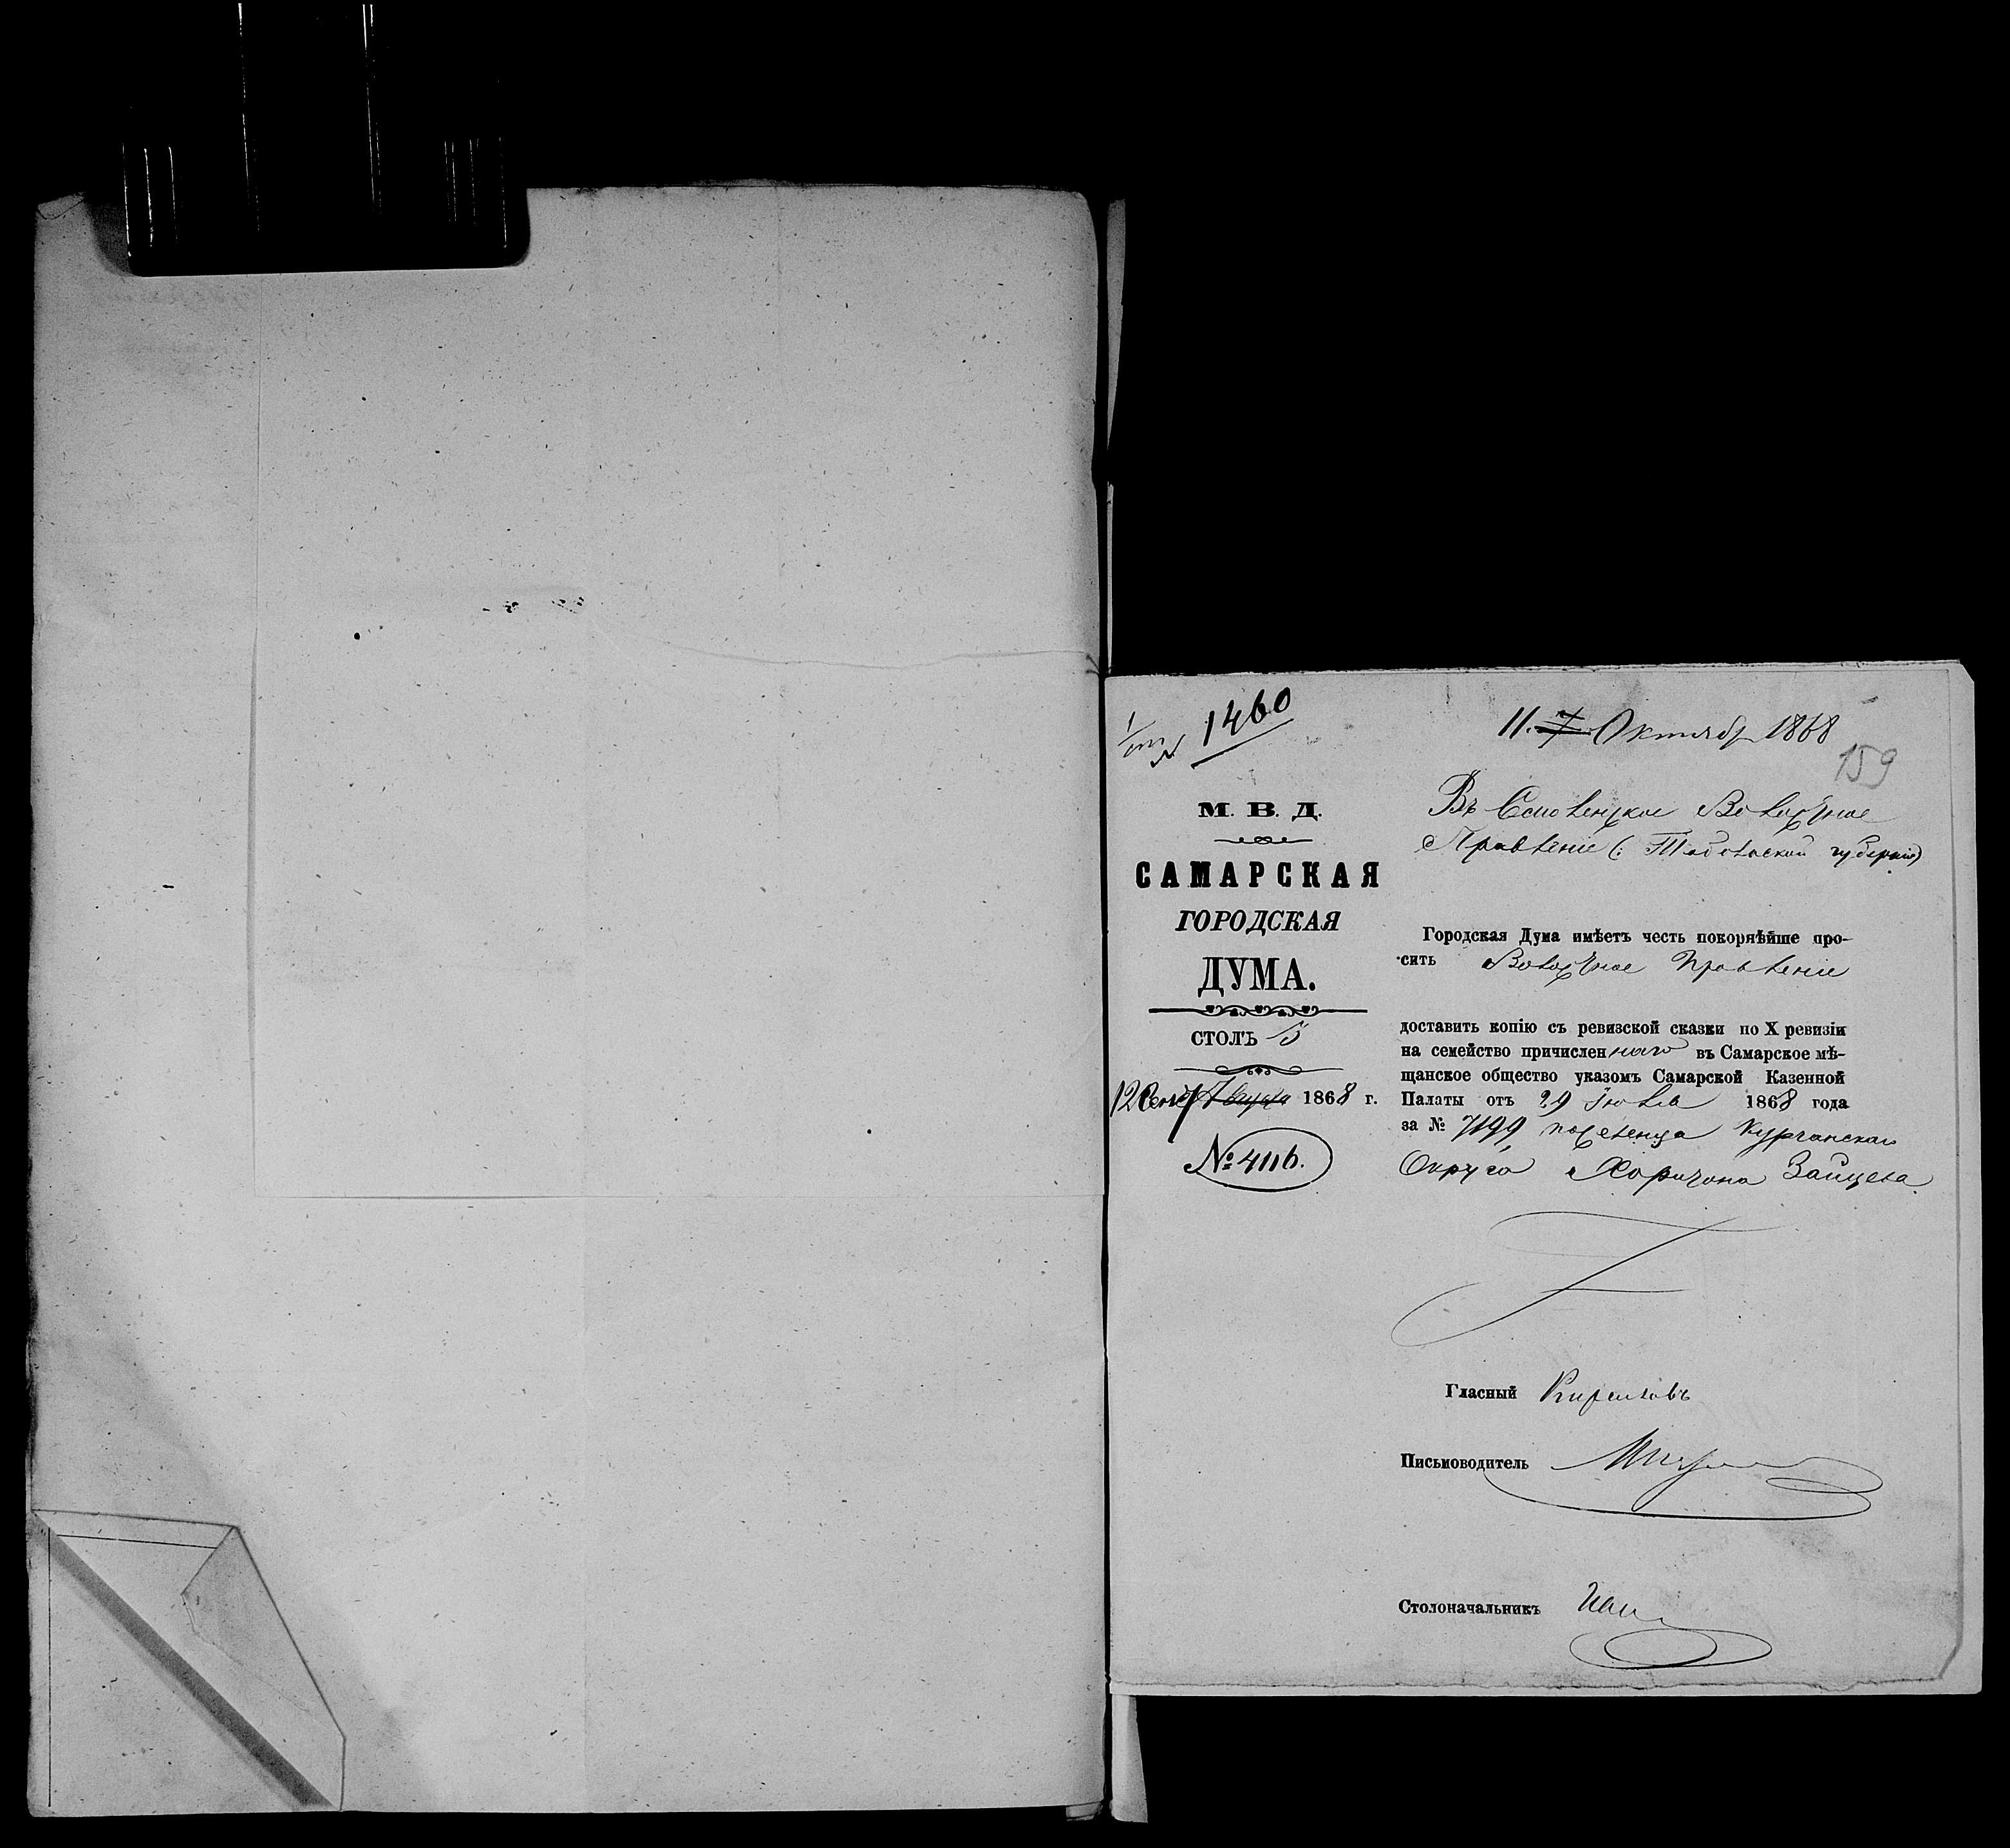 1460
11. 7 Октябр 1868
159
М. В. Д.
САМАРСКАЯ
ГОРОДСКАЯ
ДУМА.
СТОЛЪ 5
12 Сент Августа 1868 г.
№ 4116.
Въ Смолинское Волостное
Правленiе (: Тобольской губернiи)
Городская Дума имѣетъ честь покорнѣйше про-
сить Волостное Правленiе
доставить копiю съ ревизской сказки по X ревизiи
на семейство причисленнаго въ Самарское мѣ-
щанское общество указомъ Самарской Казенной
Палаты отъ 29 Iюля 1868 года
за № 7199 поселенца Курганскаго
Округа Харитона Зайцева
Гласный Кириловъ
Письмоводитель
Столоначальникъ